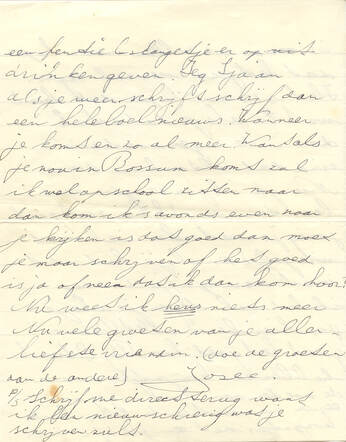 een fen sie er op uit
drinken geven. Zeg Tja an
als je weer schrijft schrijf dan
een heleboel nieuws. Wanneer
je koms en zo al meer. Want als
je nou in Bossum koms zal
ik wel op school zitten maar
dan kom ik s'avonds even naar
je kijken is dat goed dan moet
je maar schrijven of het goed
is ja of neen dat ik dan kom hoor?
Nu weet ik heus niets meer
Nu vele groeten van je aller-
liefste vriendin. (doe de groeten
aan de andere) Josee.
P/S Schrijf me direct terug want
ik ben nieuwschierig wat je
schrijven zult.